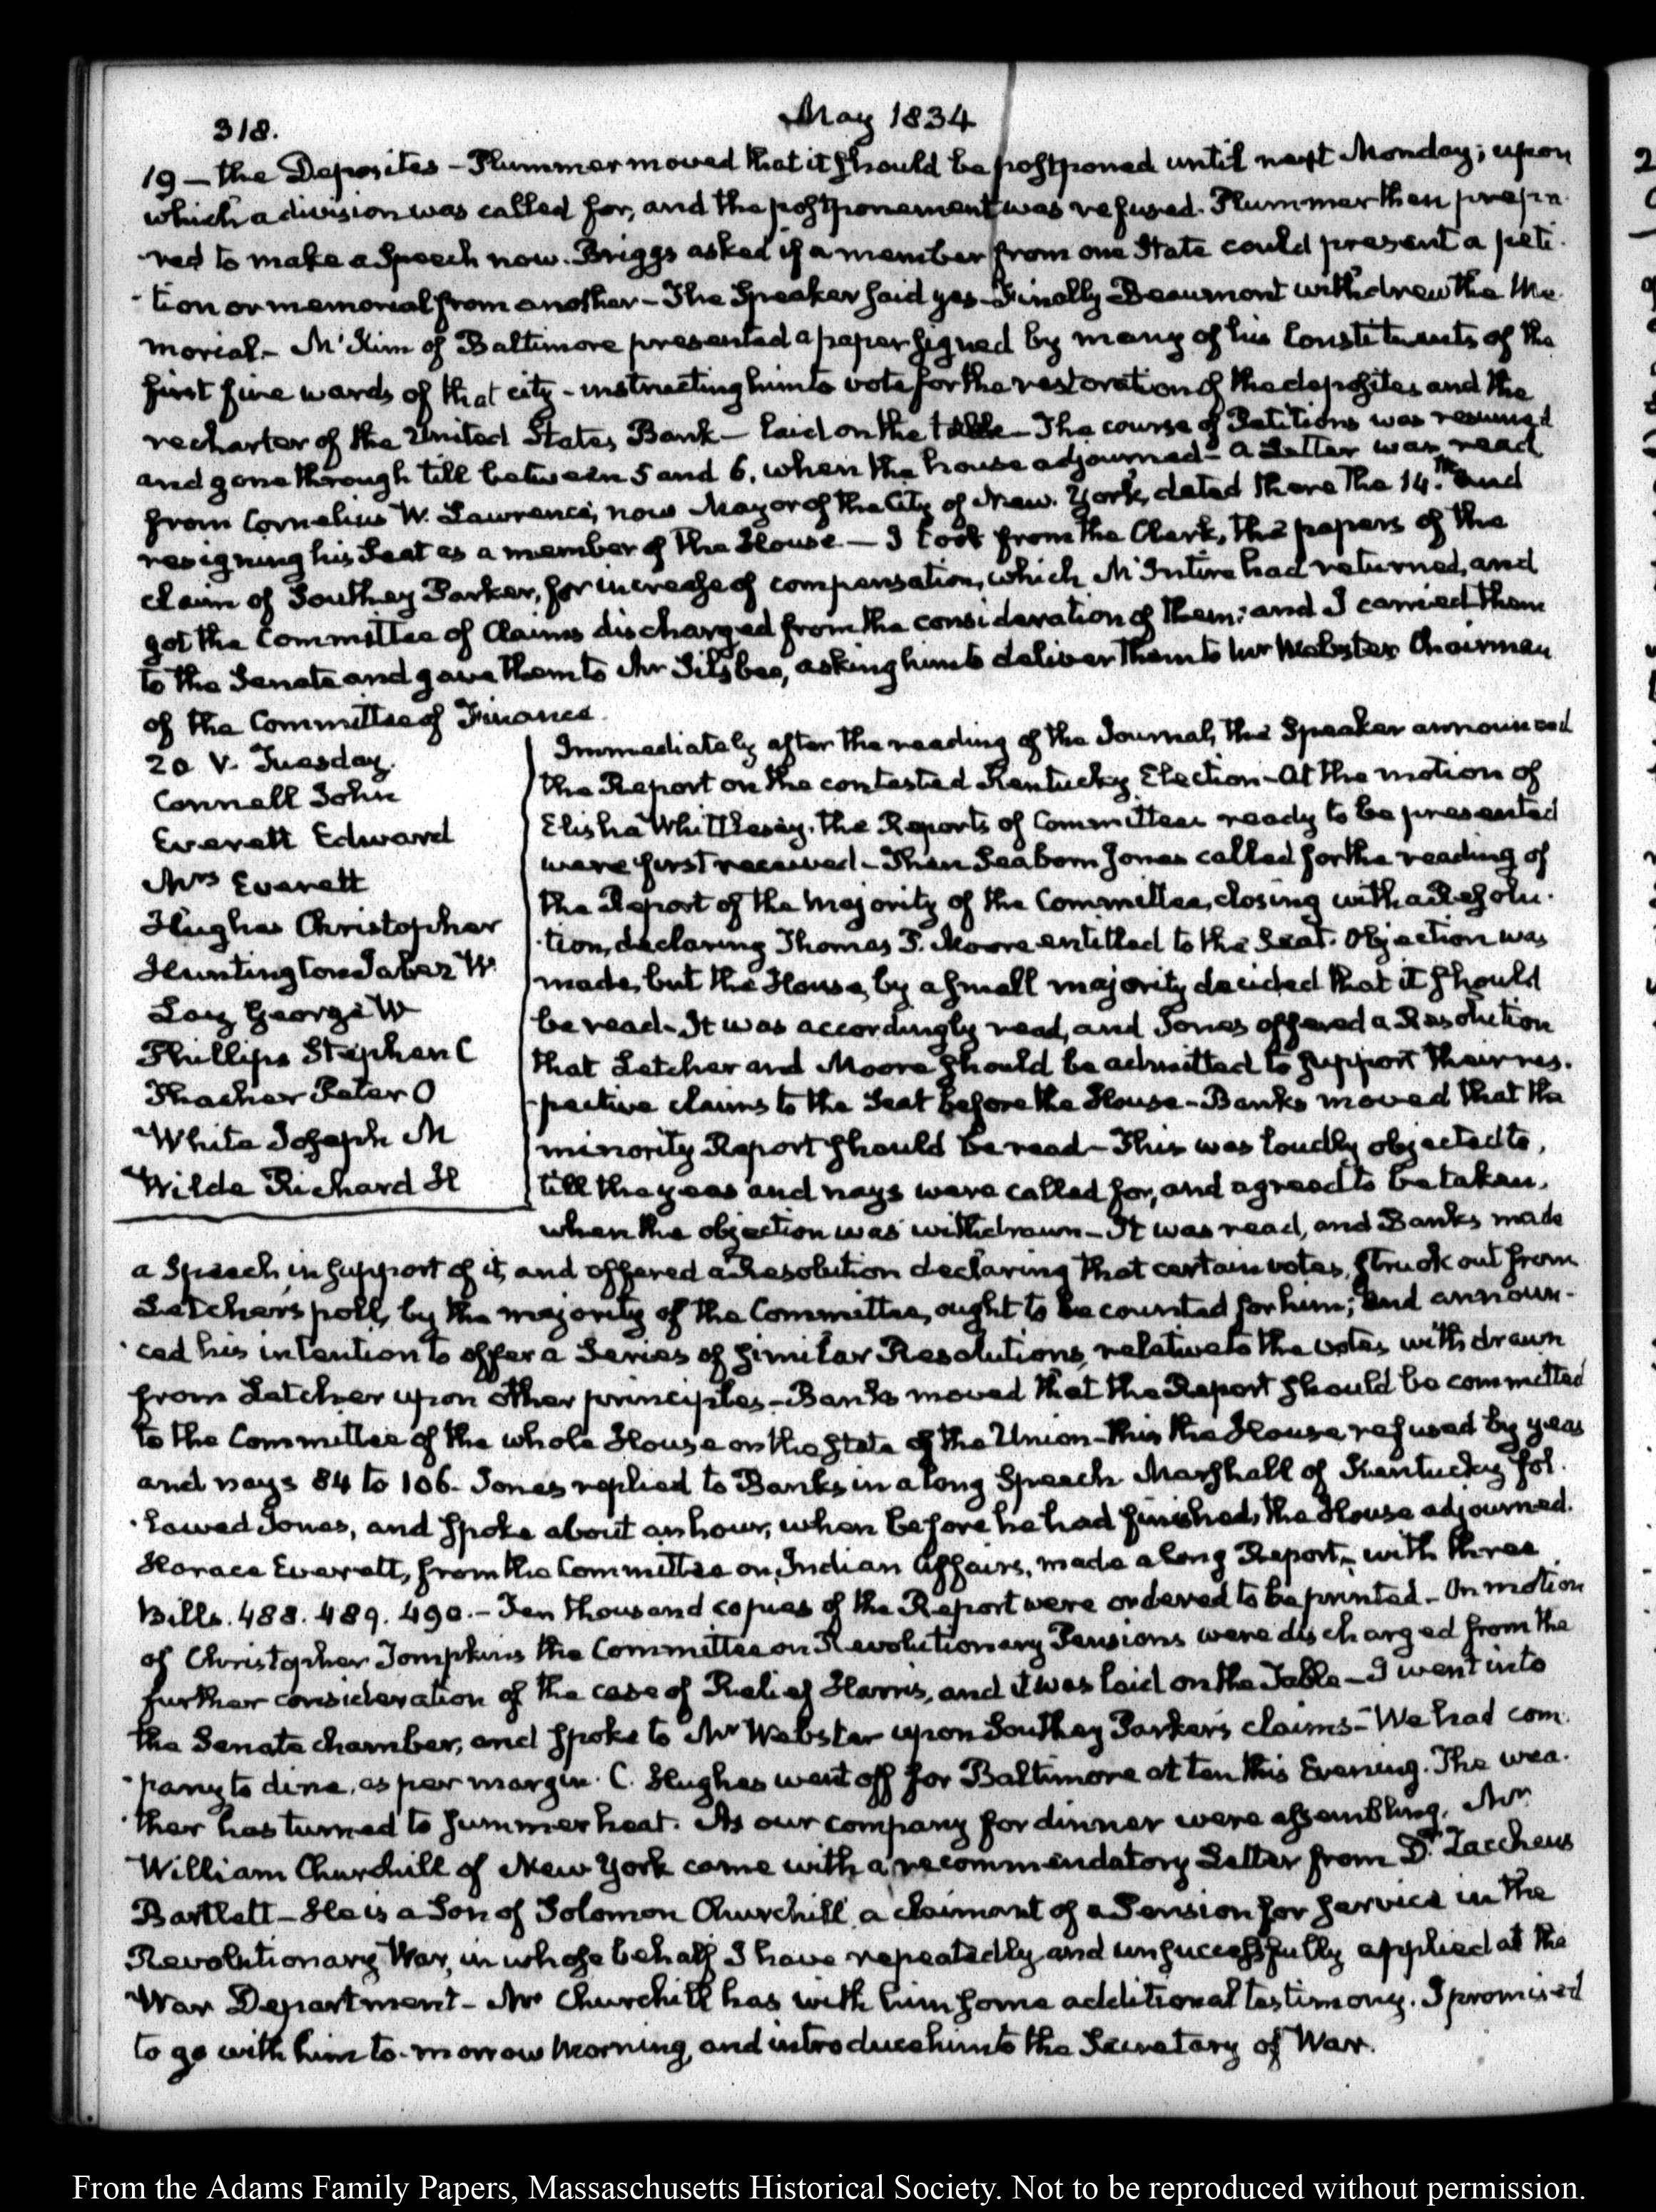 318.
May 1834
19 — the Deposites — Plummer moved that it should be postponed until next Monday; upon
which a division was called for, and the postponement was refused. Plummer then prepa-
-red to make a Speech now. Briggs asked if a member from one State could present a peti-
-tion or memorial from another — The Speaker said yes — Finally Beaumont withdrew the Me-
morial. — McKim of Baltimore presented a paper signed by many of his Constituents of the
first five wards of that city — instructing him to vote for the restoration of the deposites and the
recharter of the United States Bank — laid on the table — The course of Petitions was resumed
and gone through till between 5 and 6, when the house adjourned — a Letter was read
from Cornelius W. Lawrence, now Mayor of the City of New-York, dated there the 14th and
resigning his Seat as a member of the House. — I took from the Clerk, the papers of the
claim of Southey Parker, for increase of compensation, which McIntire had returned, and
got the Committee of Claims discharged from the consideration of them; and I carried them
to the Senate and gave them to Mr Silsbee, asking him to deliver them to Mr Webster Chairman
of the Committee of Finance.
20 V. Tuesday.
Connell John
Everett Edward
Mrs Everett
Hughes Christopher
Huntington Jabez W.
Lay George W
Phillips Stephen C
Thacher Peter O
White Joseph M
Wilde Richard H
Immediately after the reading of the Journal, the Speaker announced
the Report on the contested Kentucky Election — At the motion of
Elisha Whittlesey, the Reports of Committees ready to be presented
were first received — Then Seaborn Jones called for the reading of
the Report of the Majority of the Committee, closing with a Resolu-
-tion, declaring Thomas P. Moore entitled to the Seat. Objection was
made, but the House, by a small majority decided that it should
be read — It was accordingly read, and Jones offered a Resolution
that Letcher and Moore should be admitted to support their res-
-pective claims to the Seat before the House — Banks moved that the
minority Report should be read — This was loudly objected to,
till the yeas and nays were called for, and agreed to be taken,
when the objection was withdrawn — It was read, and Banks made
a Speech in support of it, and offered a Resolution declaring that certain votes, struck out from
Letcher's poll, by the majority of the Committee, ought to be counted for him; and announ-
-ced his intention to offer a Series of similar Resolutions, relative to the votes withdrawn
from Letcher upon other principles — Banks moved that the Report should be committed
to the Committee of the whole House on the state of the Union — this the House refused by yeas
and nays 84 to 106. Jones replied to Banks in a long Speech Marshall of Kentucky fol-
-lowed Jones, and spoke about an hour, when before he had finished, the House adjourned.
Horace Everett, from the Committee on Indian Affairs, made a long Report, with three
Bills. 488. 489. 490. — Ten thousand copies of the Report were ordered to be printed — On motion
of Christopher Tompkins the Committee on Revolutionary Pensions were discharged from the
further consideration of the case of Relief Harris, and it was laid on the Table — I went into
the Senate chamber, and spoke to Mr Webster upon Southey Parker's claims — We had com-
-pany to dine, as per margin. C. Hughes went off for Baltimore at ten this Evening. The wea-
-ther has turned to summer heat. As our company for dinner were assembling, Mr
William Churchill of New York came with a recommendatory Letter from Dr Zaccheus
Bartlett — He is a Son of Solomon Churchill a claimant of a Pension for service in the
Revolutionary War, in whose behalf I have repeatedly and unsuccessfully applied at the
War Department — Mr Churchill has with him some additional testimony. I promised
to go with him to-morrow Morning, and introduce him to the Secretary of War.
From the Adams Family Papers, Massachusetts Historical Society. Not to be reproduced without permission.